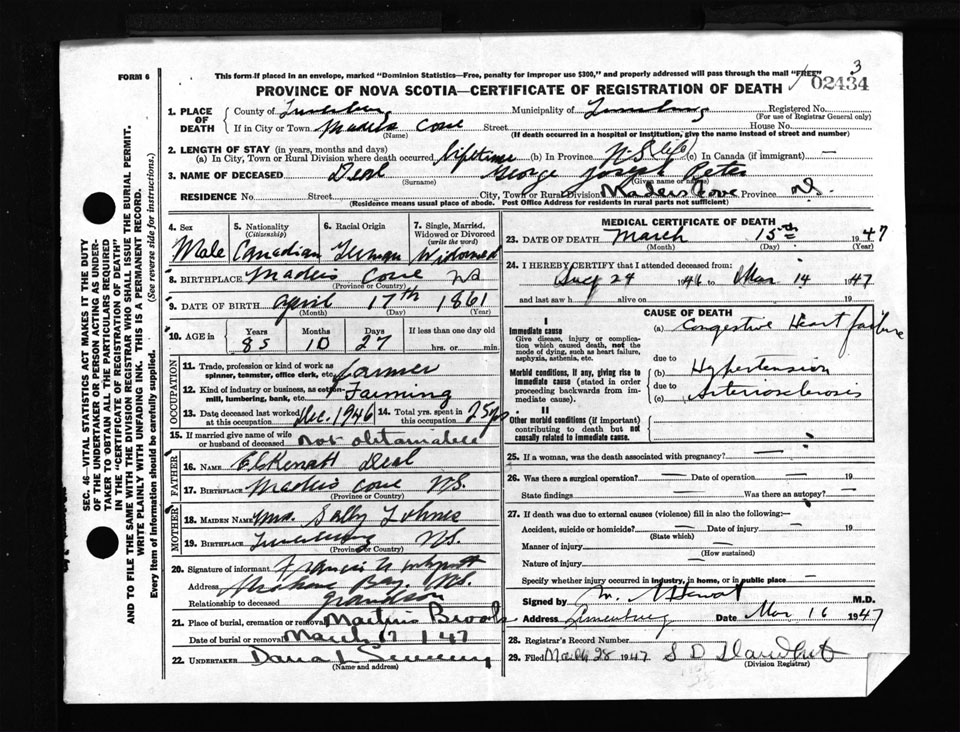 3
FORM 6
This form if placed in an envelope, marked "Dominion Statistics—Free, penalty for improper use $300," and properly addressed will pass through the mail "FREE"
02434
PROVINCE OF NOVA SCOTIA—CERTIFICATE OF REGISTRATION OF DEATH
1. PLACE OF DEATH County of Lunenburg Municipality of Lunenburg Registered No.
(For use of Registrar General only)
If in City or Town Maders Cove Street House No.
(Name) (If death occurred in a hospital or institution, give the name instead of street and number)
2. LENGTH OF STAY (in years, months and days)
(a) In City, Town or Rural Division where death occurred lifetime (b) In Province NS life (c) In Canada (if immigrant) —
3. NAME OF DECEASED Deal George Joseph Peter
(Surname) (Given name or names)
RESIDENCE No. Street City, Town or Rural Division Maders Cove Province N.S.
(Residence means usual place of abode. Post Office Address for residents in rural parts not sufficient)
SEC. 46—VITAL STATISTICS ACT MAKES IT THE DUTY
OF THE UNDERTAKER OR PERSON ACTING AS UNDER-
TAKER TO OBTAIN ALL THE PARTICULARS REQUIRED
IN THE "CERTIFICATE OF REGISTRATION OF DEATH"
AND TO FILE THE SAME WITH THE DIVISION REGISTRAR WHO SHALL ISSUE THE BURIAL PERMIT.
WRITE PLAINLY WITH UNFADING INK. THIS IS A PERMANENT RECORD.
Every item of information should be carefully supplied. (See reverse side for instructions.)
4. Sex 5. Nationality (Citizenship) 6. Racial Origin 7. Single, Married, Widowed or Divorced (write the word)
Male Canadian German Widowed
8. BIRTHPLACE Maders Cove NS
(Province or Country)
9. DATE OF BIRTH April 17th 1861
(Month) (Day) (Year)
10. AGE in Years Months Days If less than one day old
85 10 27 hrs. or min.
OCCUPATION
11. Trade, profession or kind of work as spinner, teamster, office clerk, etc. farmer
12. Kind of industry or business, as cotton-mill, lumbering, bank, etc. Farming
13. Date deceased last worked at this occupation Dec. 1946 14. Total yrs. spent in this occupation 25 yrs
15. If married give name of wife or husband of deceased not obtainable
FATHER
16. NAME Deal
17. BIRTHPLACE Maders Cove NS.
(Province or Country)
MOTHER
18. MAIDEN NAME Mrs. Sally Lohnes
19. BIRTHPLACE Lunenburg NS.
(Province or Country)
20. Signature of informant Francis
Address Mahone Bay. NS.
Relationship to deceased grandson
21. Place of burial, cremation or removal Martins Brook
Date of burial or removal March 17 / 47
22. UNDERTAKER Dana L Sweeny
(Name and address)
MEDICAL CERTIFICATE OF DEATH
23. DATE OF DEATH March 15th 1947
(Month) (Day) (Year)
24. I HEREBY CERTIFY that I attended deceased from:
Aug 24 1946 to Mar 14 1947
and last saw h alive on 19
CAUSE OF DEATH
I
Immediate cause
Give disease, injury or complication which caused death, not the mode of dying, such as heart failure, asphyxia, asthenia, etc.
(a) Congestive Heart failure
due to
Morbid conditions, if any, giving rise to immediate cause (stated in order proceeding backwards from immediate cause).
(b) Hypertension
due to
(c) Arteriosclerosis
II
Other morbid conditions (if important) contributing to death but not causally related to immediate cause.
25. If a woman, was the death associated with pregnancy? —
26. Was there a surgical operation? — Date of operation — 19
State findings — Was there an autopsy? —
27. If death was due to external causes (violence) fill in also the following:—
Accident, suicide or homicide? — Date of injury — 19
(State which)
Manner of injury —
(How sustained)
Nature of injury —
Specify whether injury occurred in industry, in home, or in public place —
Signed by M.D.
Address Lunenburg Date Mar 16 1947
28. Registrar's Record Number
29. Filed March 28 1947 S D
(Division Registrar)